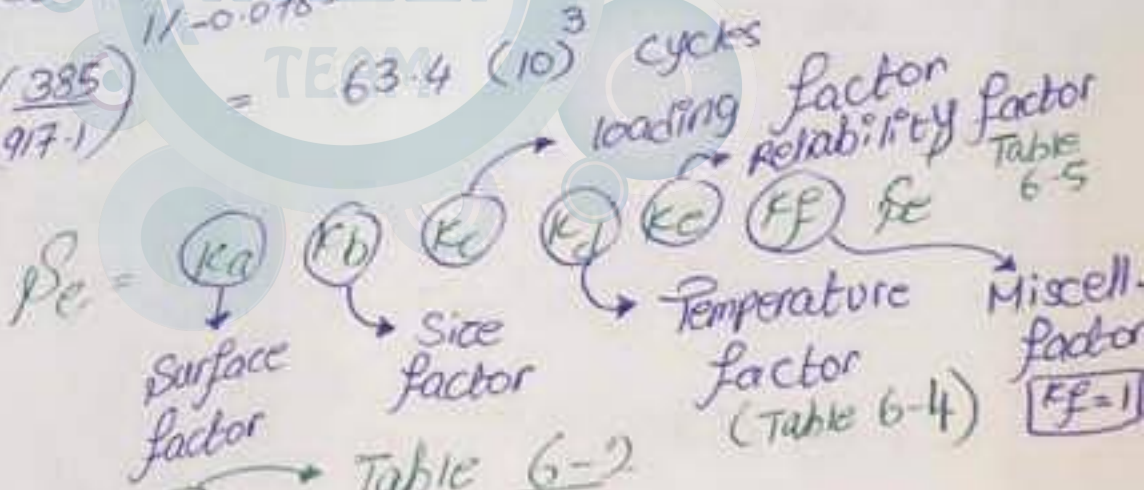 (385/917.1) 1/-0.078 = 63.4 (10)^3 cycles
TEAM
loading factor
Reliability factor
Table 6-5
Se = Ka Kb Kc Kd Ke Kf Se
Surface factor
Size factor
Temperature factor
(Table 6-4)
Miscell.
factor
Kf=1
Table 6-2